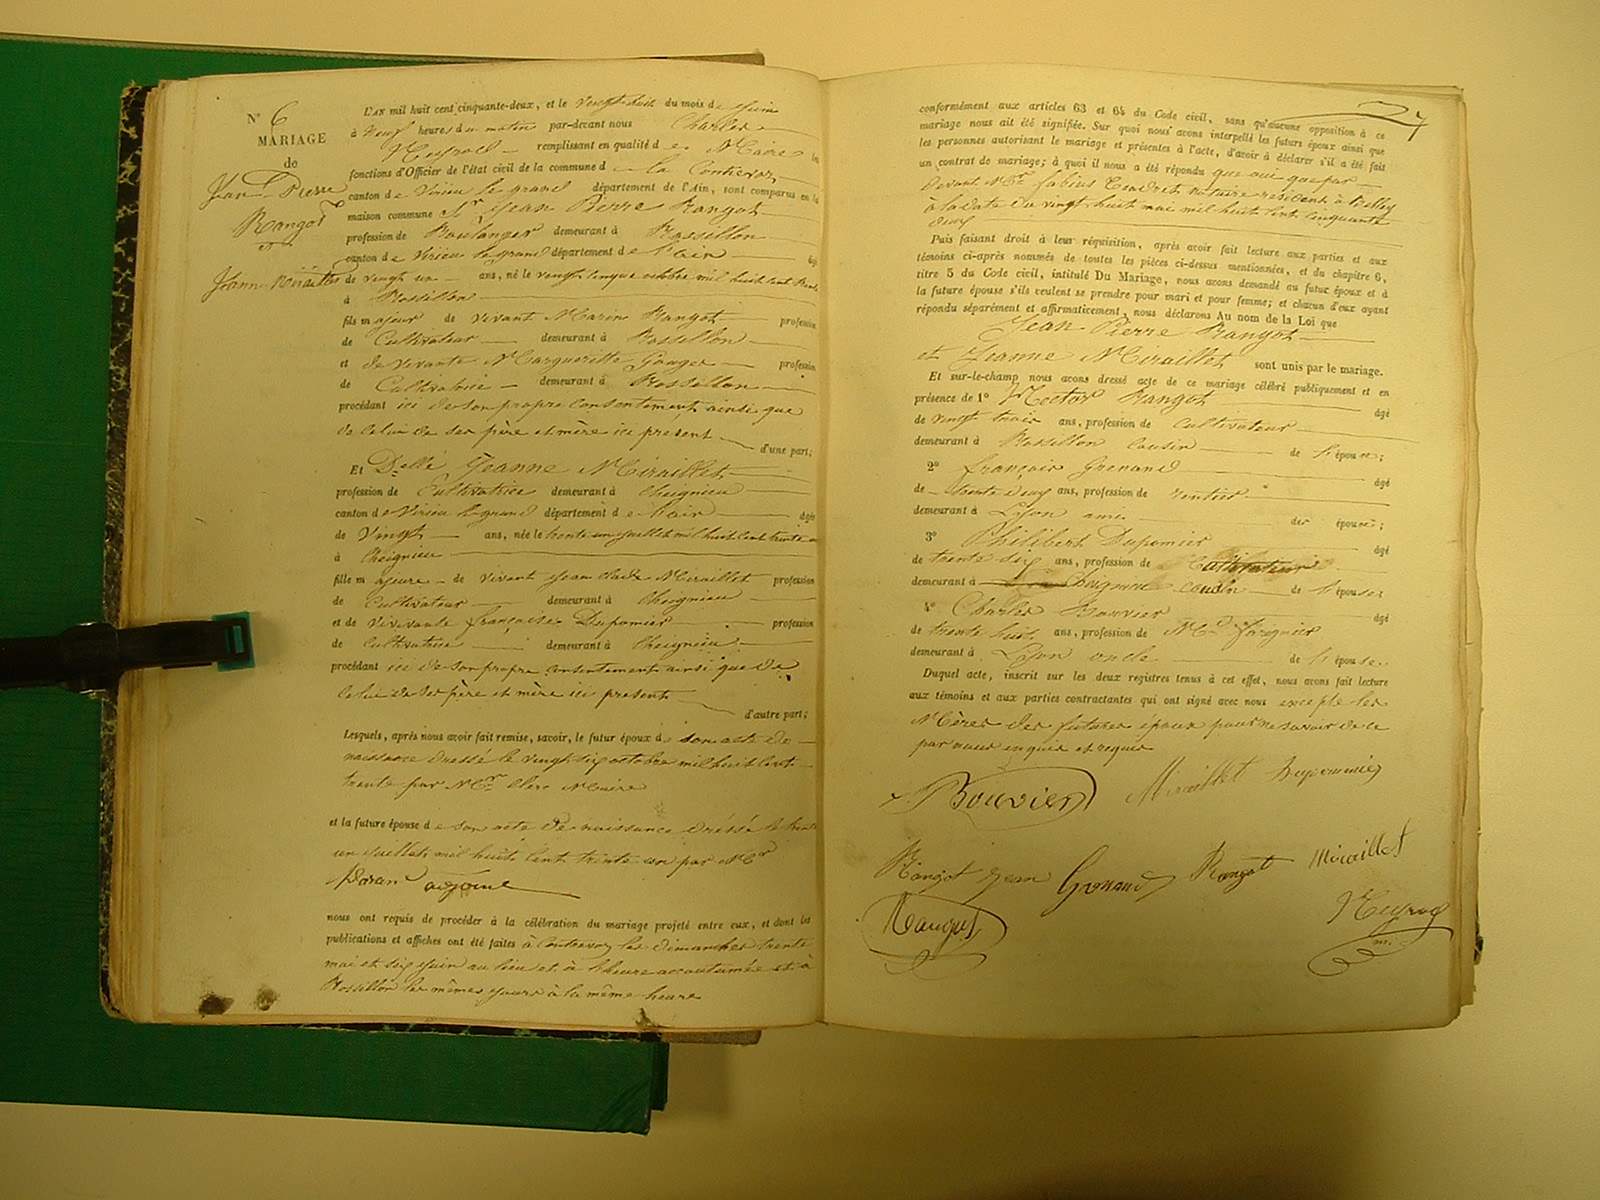 N° 6
MARIAGE
de
Jean Pierre
Rangot
et
Jeanne Miraillet
L'AN mil huit cent cinquante-deux, et le vingt-huit du mois de juin
à neuf heures du matin par-devant nous Charles
Meyrod remplissant en qualité de Maire les
fonctions d'Officier de l'état civil de la commune de la Contrevoz
canton de Virieu le grand département de l'Ain, sont comparus en la
maison commune Sr Jean Pierre Rangot
profession de Boulanger demeurant à Rossillon
canton de Virieu le grand département de l'ain âgé
de vingt un ans, né le vingt cinque octobre mil huit cent trente
à Rossillon
fils majeur de vivant Marin Rangot profession
de Cultivateur demeurant à Rossillon
et de vivante Marguerite Gouger profession
de Cultivatrice demeurant à Rossillon
procédant ici de son propre consentement ainsi que
de celui de ses père et mère ici présent
d'une part;
Et Delle Jeanne Miraillet
profession de Cultivatrice demeurant à Cheignieu
canton de Virieu le grand département de l'ain âgée
de Vingt ans, née le trente un juillet mil huit cent trente un
à Cheignieu
fille majeure de vivant Jean Claude Miraillet profession
de Cultivateur demeurant à Cheignieu
et de vivante française Dupomier profession
de Cultivatrice demeurant à Cheignieu
procédant ici de son propre consentement ainsi que de
celui de ses père et mère ici présent
d'autre part;
Lesquels, après nous avoir fait remise, savoir, le futur époux de son acte de
naissance dressé le vingt six octobre mil huit cent
trente par Mr Clerc Maire
et la future épouse de son acte de naissance dréssé le trente
un juillet mil huit cent trente un par Mr
adjoint
nous ont requis de procéder à la célébration du mariage projeté entre eux, et dont les
publications et affiches ont été faites à Contrevoz les dimanches trente
mai et six juin au lieu et à l'heure accoutumée et à
Rossillon les mêmes jours à la même heure
7
conformément aux articles 63 et 64 du Code civil, sans qu'aucune opposition à ce
mariage nous ait été signifiée. Sur quoi nous avons interpellé les futurs époux ainsi que
les personnes autorisant le mariage et présentes à l'acte, d'avoir à déclarer s'il a été fait
un contrat de mariage; à quoi il nous a été répondu que oui que par
devant Mre fabius Tendret notaire résident à Belley
à la date du vingt huit mai mil huit cent cinquante
deux
Puis faisant droit à leur réquisition, après avoir fait lecture aux parties et aux
témoins ci-après nommés de toutes les pièces ci-dessus mentionnées, et du chapitre 6,
titre 5 du Code civil, intitulé Du Mariage, nous avons demandé au futur époux et à
la future épouse s'ils veulent se prendre pour mari et pour femme; et chacun d'eux ayant
répondu séparément et affirmativement, nous déclarons Au nom de la Loi que
Jean Pierre Rangot
et Jeanne Miraillet sont unis par le mariage.
Et sur-le-champ nous avons dressé acte de ce mariage célébré publiquement et en
présence de 1° Hector Rangot âgé
de vingt trois ans, profession de Cultivateur
demeurant à Rossillon cousin de l'époux;
2° françois Grenand âgé
de trente deux ans, profession de rentier
demeurant à Lyon ami des époux;
3° Philibert Dupomier âgé
de trente six ans, profession de Cultivateur
demeurant à Cheignieu cousin de l'épouse;
4° Charles Bouvier âgé
de trente huit ans, profession de
demeurant à Lyon oncle de l'épouse.
Duquel acte, inscrit sur les deux registres tenus à cet effet, nous avons fait lecture
aux témoins et aux parties contractantes qui ont signé avec nous excepté les
Mères des futures époux pour ne savoir de ce
par nous enquis et requis
Bouvier Miraillet Dupommier
Rangot jean Grenand Rangot Miraillet
Rangot Meyrod
m.